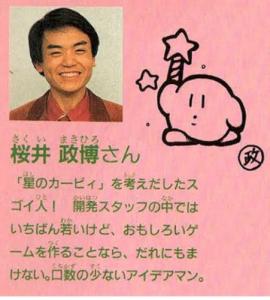 さくい まさひろ
桜井 政博さん
「星のカービィ」を考えだしたス
ゴイ人！ 開発スタッフの中では
いちばん若いけど、おもしろいゲ
ームを作ることなら、だれにもま
けない。口数の少ないアイデアマン。
政